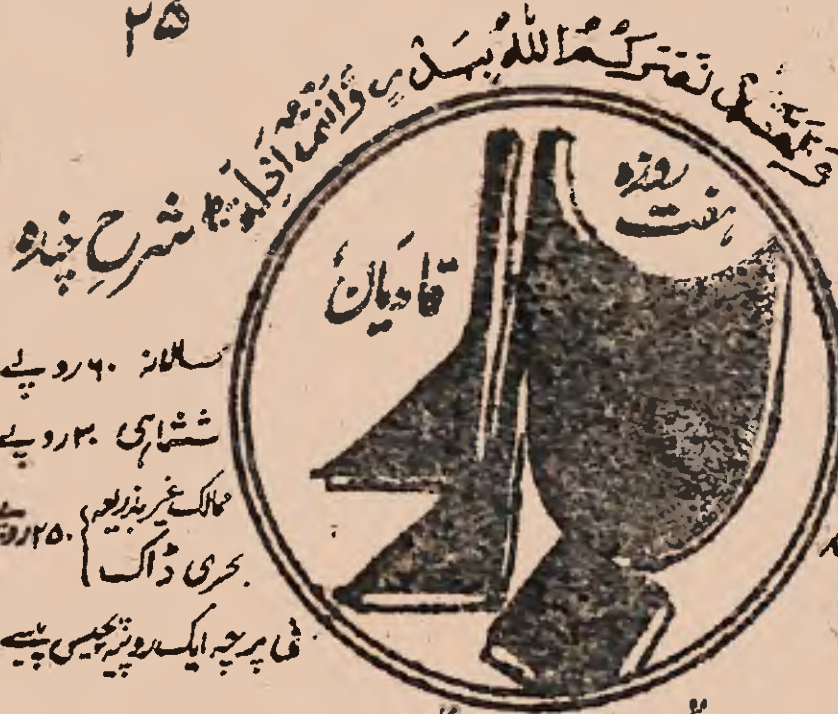 ۲۵
وَلَقَدْ نَصَرَكُمُ اللّٰهُ بِبَدْرٍ وَّاَنْتُمْ اَذِلَّةٌ
ہفت روزہ
بدر
قادیان
شرحِ چندہ
سالانہ ۶۰ روپے
ششماہی ۳۰ روپے
ممالک غیر بذریعہ بحری ڈاک } ۲۵۰ روپے
فی پرچہ ایک روپیہ پچیس پیسے